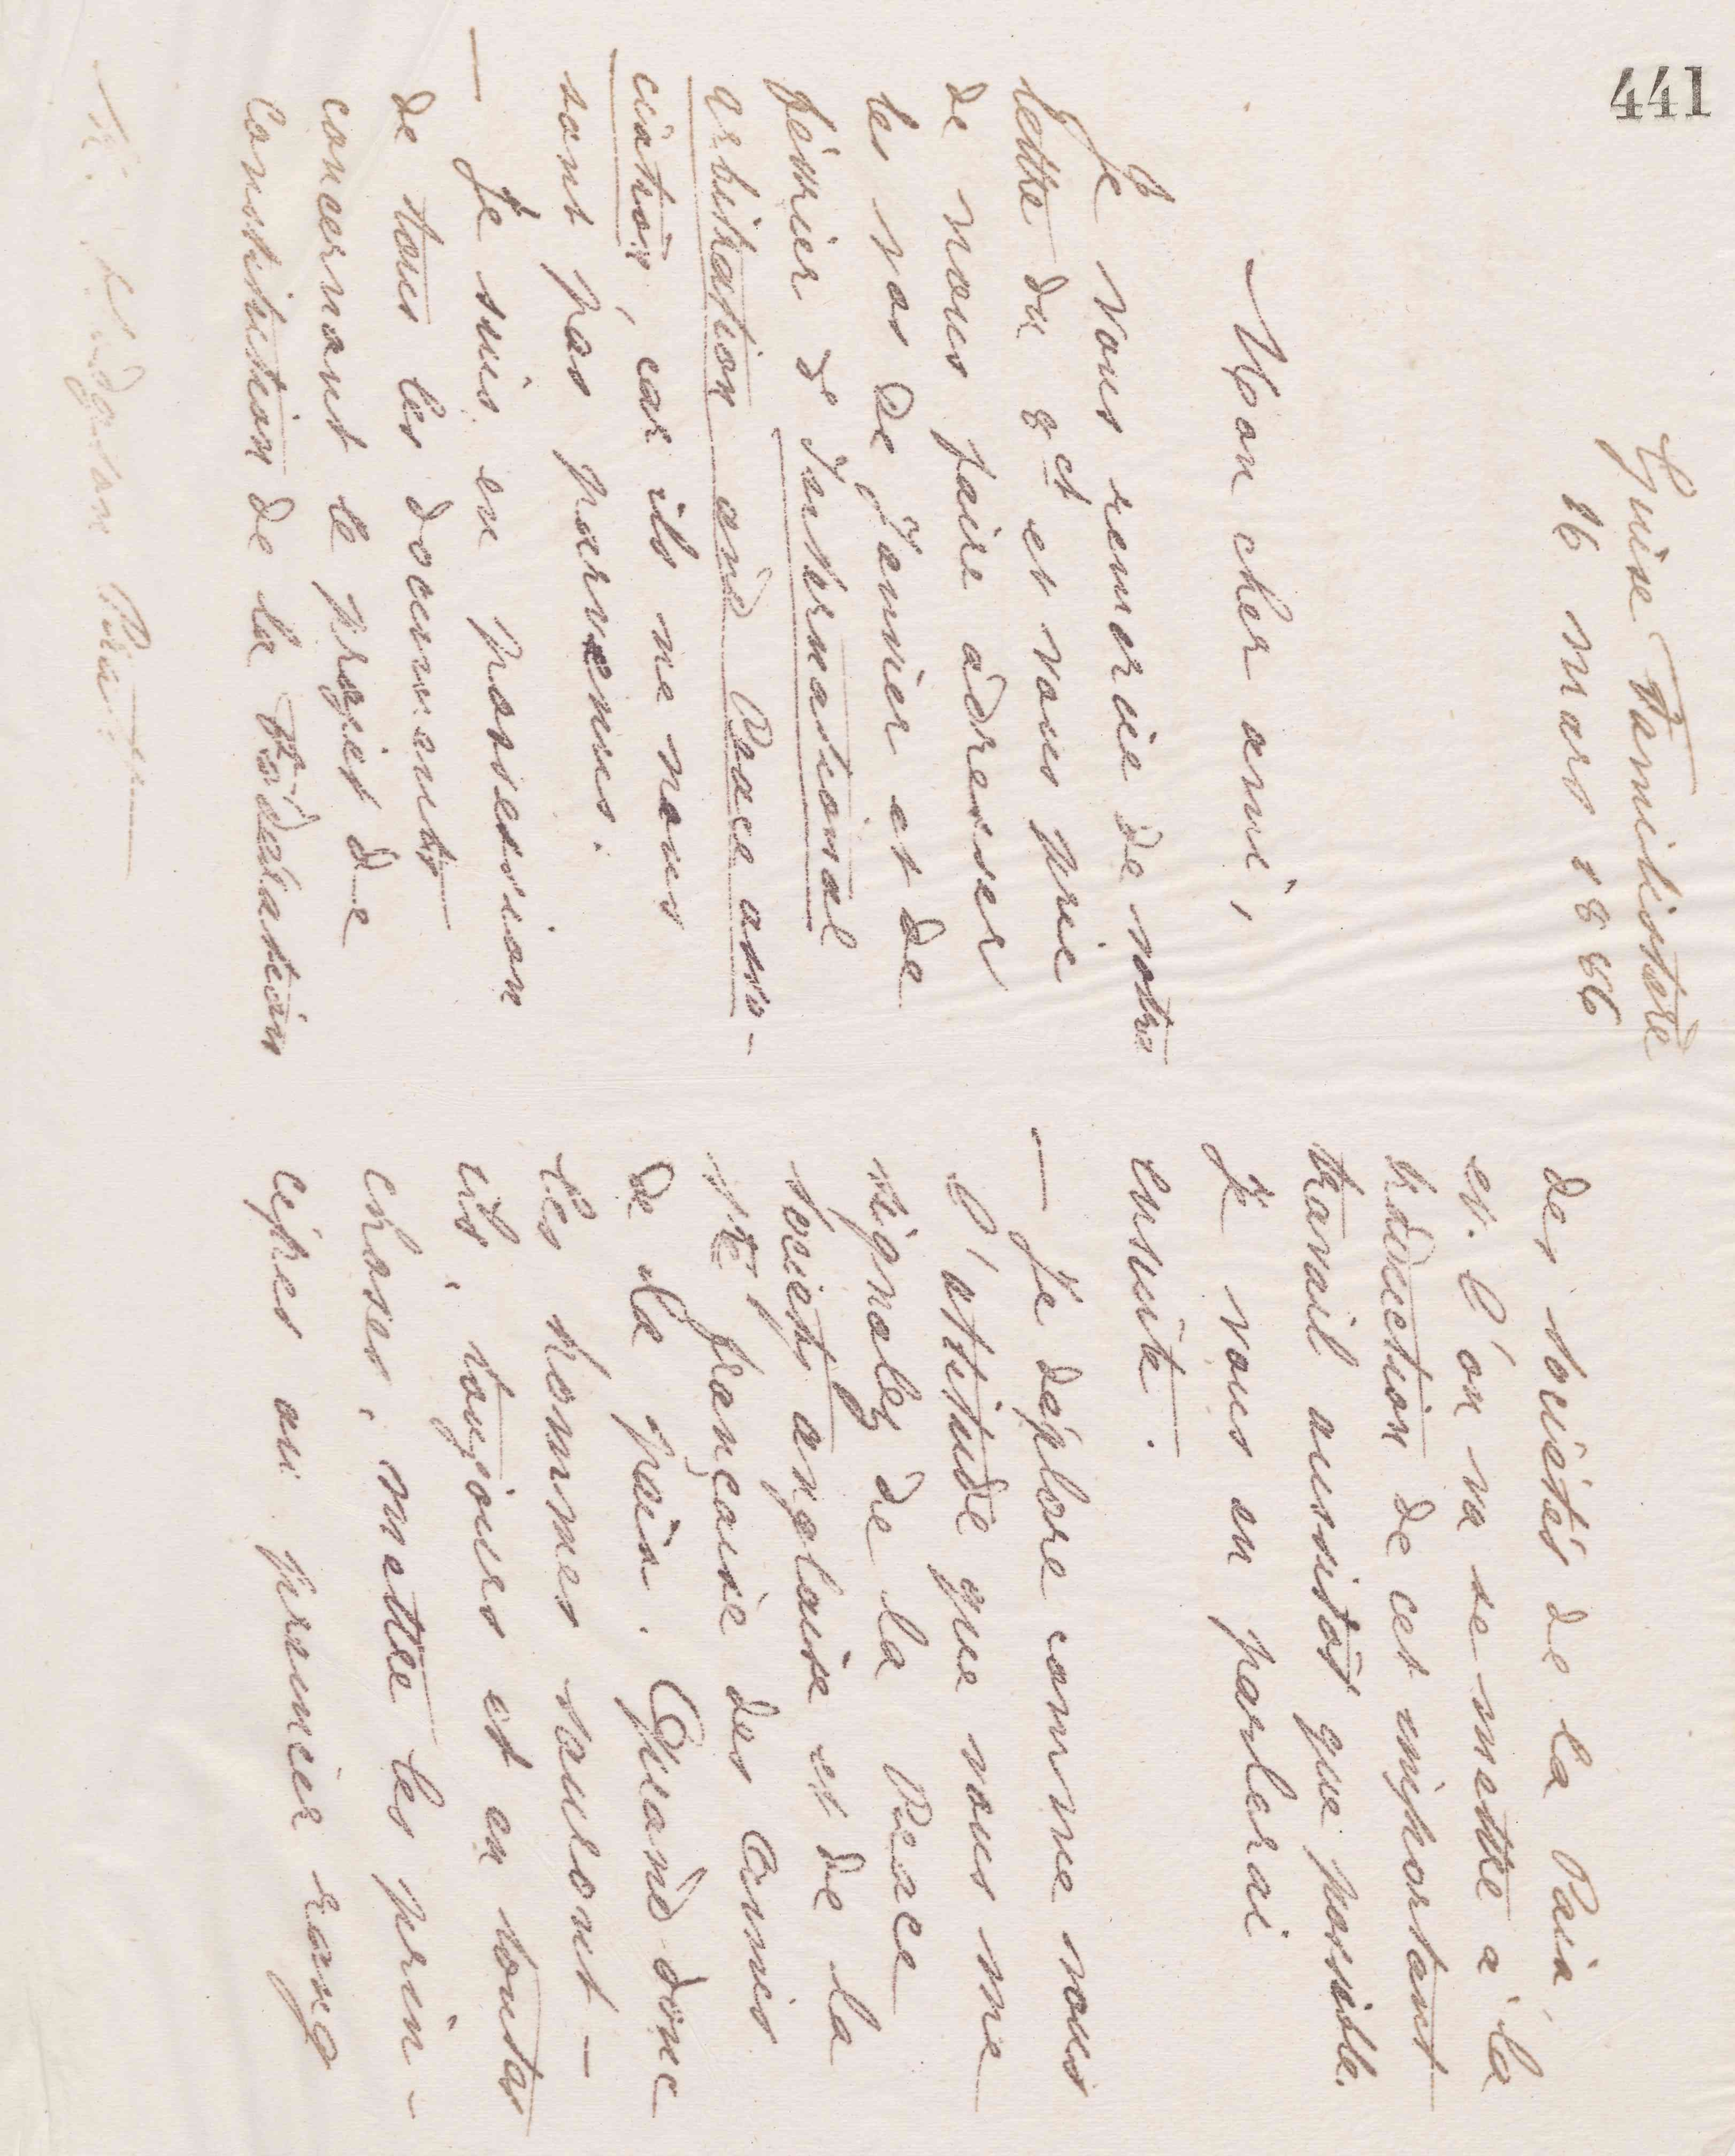 441
Guise Familistère
16 mars 1886
Mon cher ami,
Je vous remercie de votre
lettre du 9 ct et vous prie
de nous faire adresser
les nos de Janvier et de
février de International
arbitration and Peace asso-
ciation, car ils ne nous
sont pas parvenus.
— Je suis en possession
de tous les documents
concernant le projet de
Constitution de la Fédération
Hodgson Pratt
des sociétés de la Paix,
et l'on va se mettre à la
traduction de cet important
travail aussitôt que possible.
Je vous en parlerai
ensuite.
— Je déplore comme vous
l'attitude que vous me
signalez de la Peace
Society anglaise et de la
Sté française des Amis
de la paix. Quand donc
les hommes sauront-
ils, toujours et en toutes
choses, mettre les prin-
cipes au premier rang